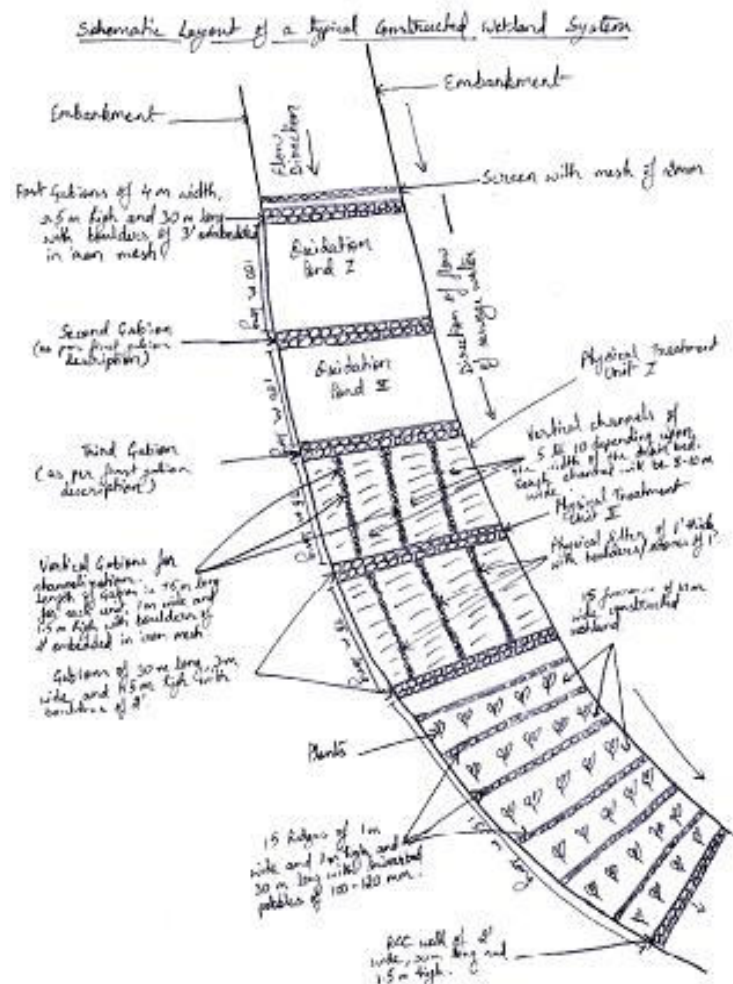 Schematic Layout of a typical Constructed Wetland System
Embankment
Embankment
Flow
Direction
Screen with mesh of
First Gabions of 4 m width,
2.5 m high and 30 m long
with boulders of 3' embedded
in iron mesh
Oxidation
Pond I
100 m long
Direction of flow
of sewage water
Second Gabion
(as per first gabion
description)
Oxidation
Pond II
100 m long
Physical Treatment
Unit I
Third Gabion
(as per first gabion
description)
Vertical channels of
5 to 10 depending upon
the width of the bed.
channel will be 8-10 m
wide
Physical Treatment
Unit II
Physical filter of 1' thick
with boulders/stones of 1'
Vertical Gabions for
channelization
length of Gabion is 75 m long
for each unit, 1 m wide and
1.5 m high with boulders of
2' embedded in iron mesh
m long
m long
Gabions of 30 m long, 2 m
wide, and 1.5 m high with
boulders of 2'
15 of
wide constructed
wetland
Plants
15 Ridges of 1 m
wide and 1 m high and
30 m long with
pebbles of 100-120 mm.
m long
RCC wall of 2'
wide, 30 m long and
1.5 m high.